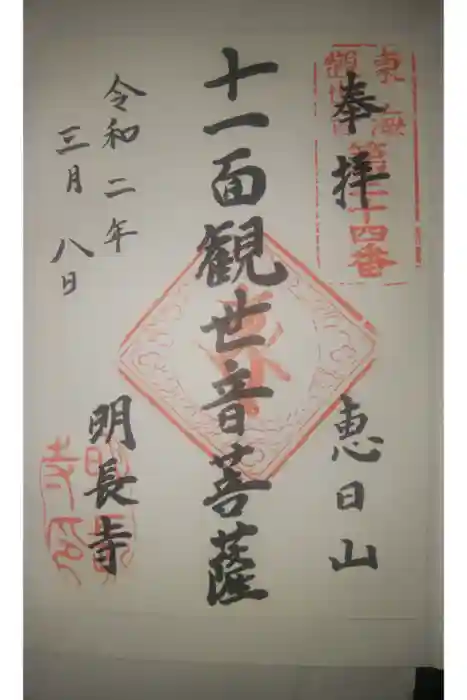 奉拝
東海
第三十四番
恵日山
十一面観世音菩薩
令和二年
三月八日
明長寺